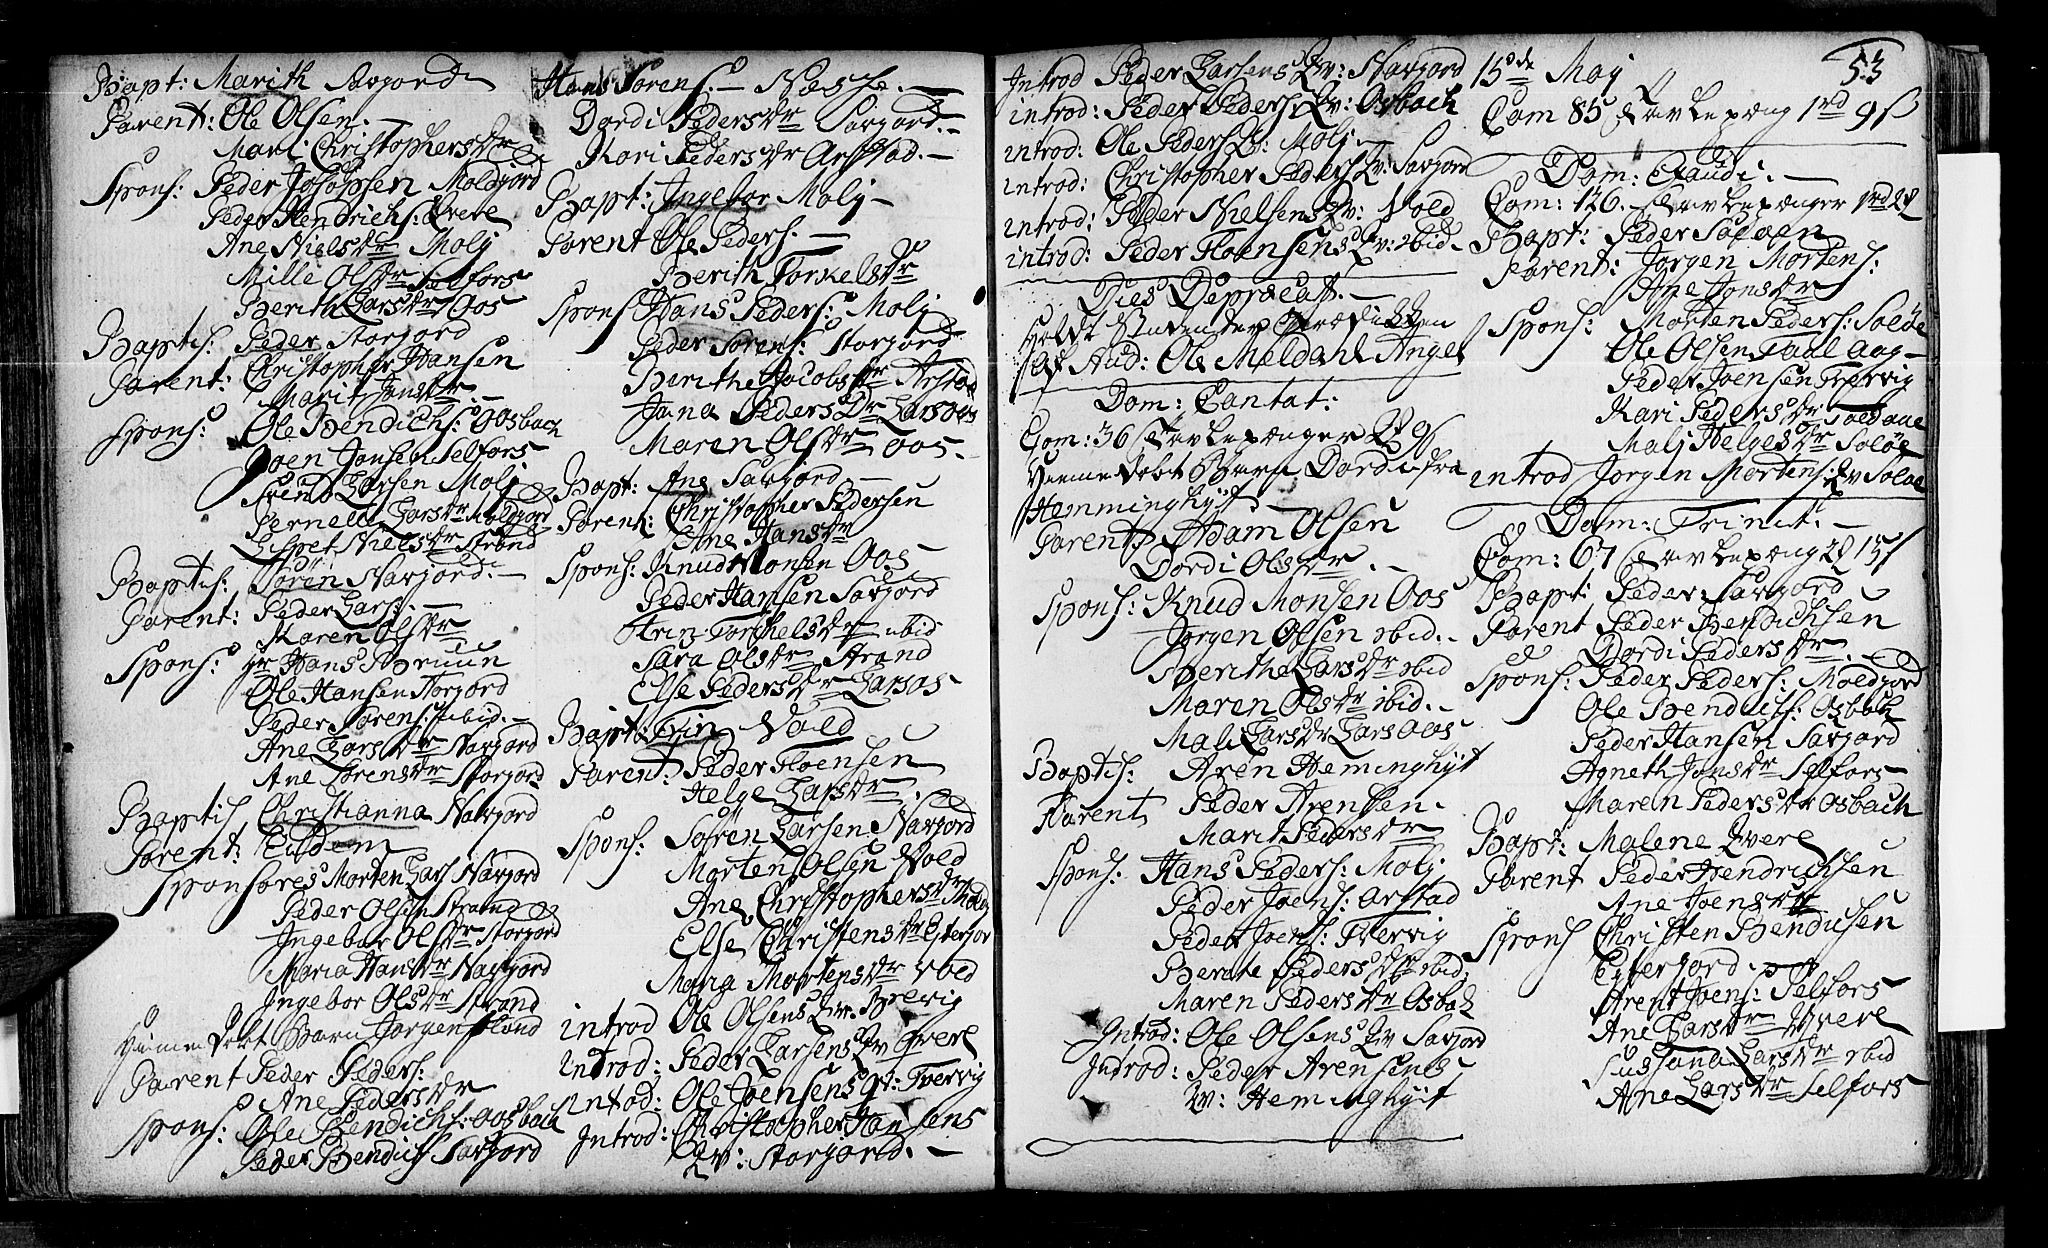 Bapt: Marith Savjord
Parent: Ole Olsen.
Mari Christophersdr
Spons: Peder Josepsen Moldjord
Peder Hendrichs: Evere
Ane Nielsdr Molj
Mille Olsdr Selfors
Berith Larsdr Oos
Baptis: Peder Storjord
Parent: Christopher Hansen
Marit Jonsdr.
Spons: Ole Bendichs: Oosbach
Joen Jonsen Selfors
Svend Larsen Molj
Pernell Larsdr Moldjord
Lispet Nielsdr Strand
Baptis: Sören Navjord.
Parent: Peder Lars:
Karen Olsdr
Spons: Hr Hans Bruun
Ole Hansen Storjord
Peder Sörens: ibid.
Ane Larsdr Navjord
Ane Sörensdr Storjord
Baptis Christianna Navjord
Parent: Eidem
Sponsores Morten Lars Navjord
Peder Olsen Strand
Ingebor Olsdr Storjord
Maria Hansdr Navjord
Ingebor Olsdr Strand
Hiemme Döbt Barn Jorgen
Parent Peder Peders:
Ane Pedersdr
Spons: Ole Bendichs: Oosbach
Peder Bendichs Savjord
Hans Sörens.
Dordi Pedersdr Savjord.
Kari Pedersdr Arstad.
Bapt: Ingebor Molj
Parent Ole Peders.
Berith Torkelsdr
Spons Hans Peders: Molj
Peder Sörens: Storjord
Berithe Jacobsdr Arstad
Jana Pedersdr Larsoos
Maren Olsdr Oos.
Bapt: Ane Savjord
Parent: Christopher Pedersen
Ane Hansdr
Spons: Knud Monsen Oos
Peder Hansen Savjord
Trin Torchelsdr ibid
Sara Olsdr Strand
Else Pedersdr Larsos
Bapt: Trin Vold
Parent: Peder Floensen
Helge Larsdr.
Spons: Sören Larsen Navjord
Morten Olsen Vold
Ane Christophersdr
Else Christensdr Ejterjor
Maria Mortensdr Vold
introd Ole Olsens Qv. Brevig
introd: Peder Larsens Qv Evere
introd: Ole Joensens qv: Tvervig
Introd: Christopher Hansens
Qv: Storjord.
53
Introd Peder Larsens Qv: Navjord
introd: Peder Peders: Qv: Osbach
introd: Ole Peders Qv: Molj
introd: Christopher Peders Qv: Savjord
introd: Peder Nielsens Qv: Vold
introd: Peder Floensens Qv: ibid.
Dies Deprecat.
holdt Studenten Prædiken
af Aud: Ole Meldahl Angel
Dom: Cantat:
Com: 36 Tavlepænger
Hiemme döbt Barn Dordi fra
Hemminghÿtt
Parent Adam Olsen
Dordi Olsdr.
Spons: Knud Monsen Oos
Jörgen Olsen ibid.
Berithe Larsdr ibid
Maren Olsdr ibid.
Mali Larsdr Larsoos
Baptis: Aren Heminghÿt
Parent Peder Arensen.
Marit Pedersdr
Spons. Hans Peders: Molj
Peder Joens: Arstad
Peder Joens: Tvervig
Berete Pedersdr ibid
Maren Pedersdr Osbach
Introd: Ole Olsens Qv Savjord
Introd: Peder Arensens
Qv: Heminghÿtt
15de Maj
Com 85 Tavlepæng 1rd 9s
Dom: Exaudi.
Com: 126. Tavlepænger
Bapt: Peder Solöen
Parent: Jörgen Mortens:
Ane Jonsdr
Spons: Morten Peders: Solöe
Ole Olsen
Peder Joensen Tvervig
Kari Pedersdr
Malj Helgesdr Solöe
introd Jörgen Mortens: Qv Solöe
Dom: Trinit:
Com: 67 Tavlepæng
Bapt: Peder Savjord
Parent Peder Bendichsen
Dordi Pedersdr.
Spons: Peder Peders: Moldjord
Ole Bendichs: Osbach
Peder Hansen Savjord
Agneth Jonsdr Selfors
Maren Pedersdr Osbach
Bapt: Malene Evere
Parent Peder Hendrichsen
Ane Joensdr
Spons Christen Bendichsen
Ejterjord.
Arent Joens: Selfors
Ane Larsdr Evere
Sussana Larsdr ibid
Ane Larsdr Selfors